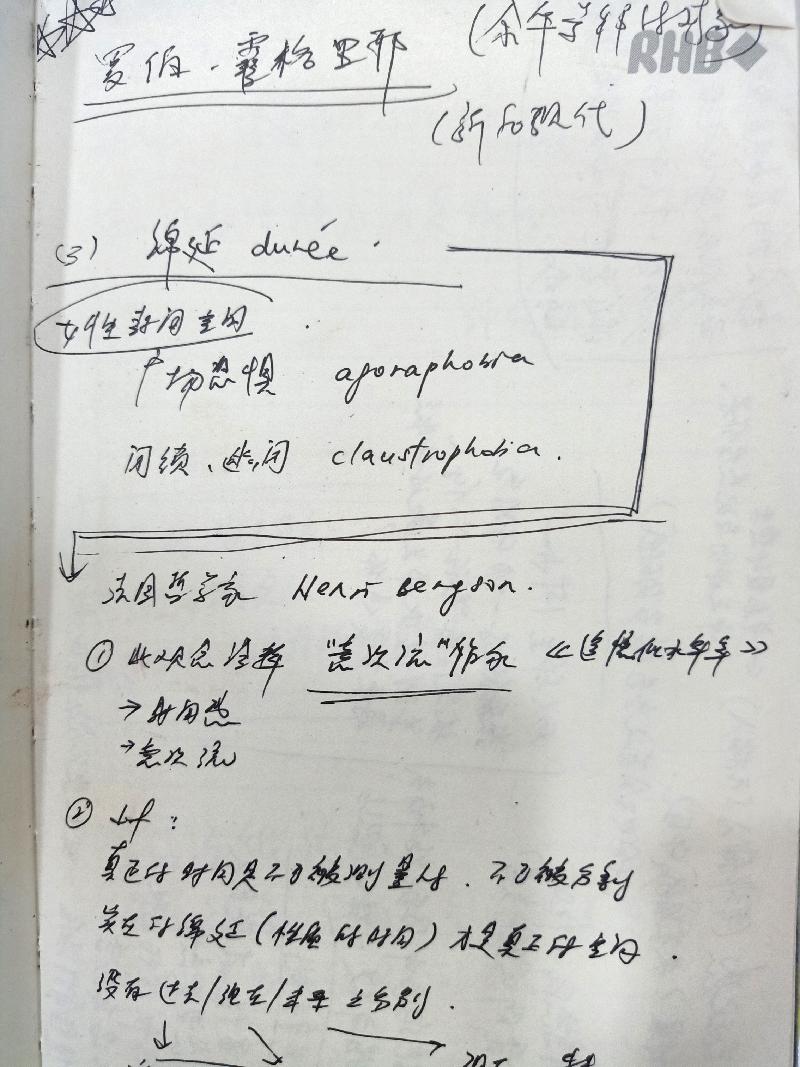 罗伯·霍格里耶
RHB
(新后现代)
(3) 绵延 durée.
女性封闭空间
广场恐惧 agoraphobia
闭幽 claustrophobia.
法国哲学家 Henri Bergson.
① 此观念诠释 "意识流"作家 《追忆似水年华》
→ 时间感
→ 意识流
② LF:
真正的时间是不可被测量的. 不可被分割
实在的绵延(性质的时间)才是真正的
没有过去/现在/未来之分别.